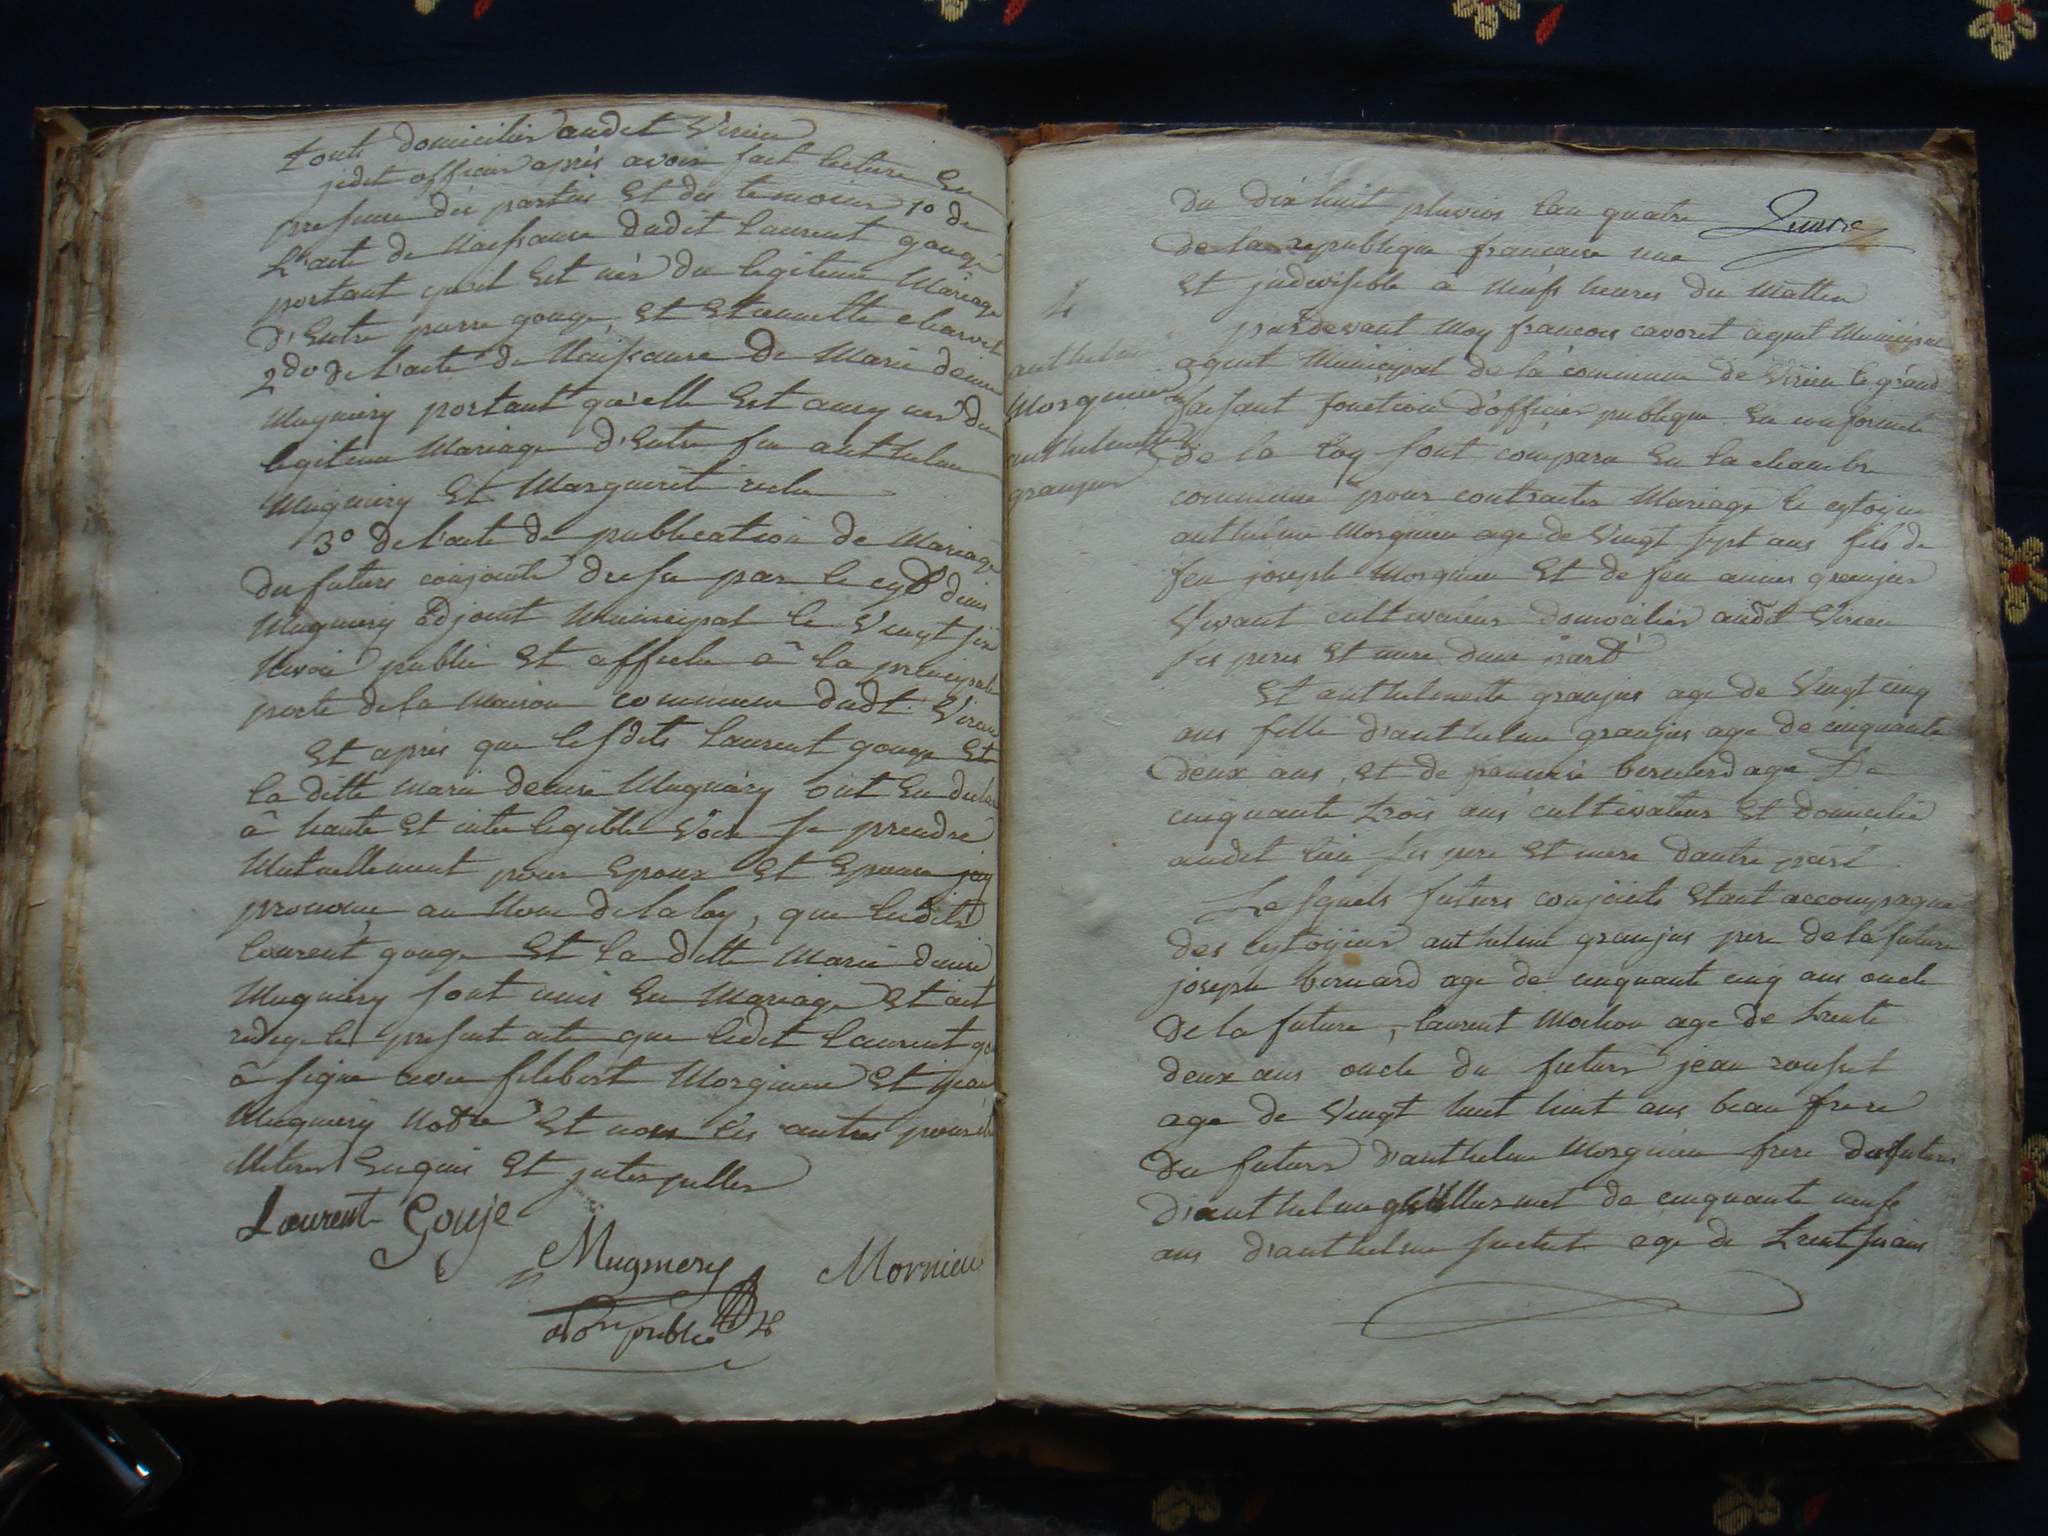 touts domiciliés audit Virieu
jedit officier après avoir fait lecture En
presence dés parties Et des temoins 1° de
L'acte de Naissance dudit laurent gouge
portant qu'il Est nés du legitime Mariage
d'Entre pierre gouge Et Etiennette charvet
2do de l'acte de Naissance de Marie denise
Mugniery portant qu'elle Est aussy nes du
legitime Mariage d'Entre feu anthelme
Mugniery Et Marguerit
3° de l'acte de publication de Mariage
des futurs conjoints dresse par le cyt denis
Mugniery Adjoint Municipal le Vingt six
Nivos publié Et affiche à la principale
porte de la Maison commune dudt Virieu
Et aprés que lesdits laurent gouge Et
la ditte Marie denise Mugniery ont En
à haute Et intelegible Voix se prendre
Mutuellement pour Epoux Et Epouse jay
prononcé au Nom de la loy, que ledits
laurent gouge Et la ditte Marie denise
Mugniery sont unis En Mariage Et ait
redige le present acte que ledit laurent
à signe avec filibert Morgnieu Et jean
Mugniery Notre Et non lés autres pour
illiteres Enquis Et interpelles
Laurent Gouje
Mugniery Mornieu
Nore public
du dix huit pluvios lan quatre
de la republique francaise une
Et jndivisible à Neufs heures du Mattin
4
pardevant Moy francois cavoret agent Municipal
anthelme
agent Municipal de la commune de Virieu le grand
Morgnieu
faisant fonction d'officier publique En conformite
anthelmette
de la loy sont comparu En la chambre
granjus
commune pour contracter Mariage le cytoijen
anthelme Morgnieu age de Vingt sept ans fils de
feu joseph Morgnieu Et de feu granjus
Vivant cultivateur domicilies audit Virieu
ses peres Et mere dune part
Et anthelmette granjus age de Vingt cinq
ans fille d'anthelme granjus age de cinquante
deux ans, Et de bernard age De
cinquante trois ans cultivateur Et domicilié
audit lieu ses pere Et mere dautre part
Lesquels futurs conjoints Etant accompagne
des cytoijens anthelme granjus pere de la future
joseph bernard age de cinquante cinq ans oncle
De la future, laurent Mochon age de trente
deux ans oncle du futur jean rousset
age de Vingt huit huit ans beau frere
du futur d'anthelme Morgnieu frere du futur
d'anthelme guillermet de cinquante neufs
ans d'anthelme suchet age de trente six ans